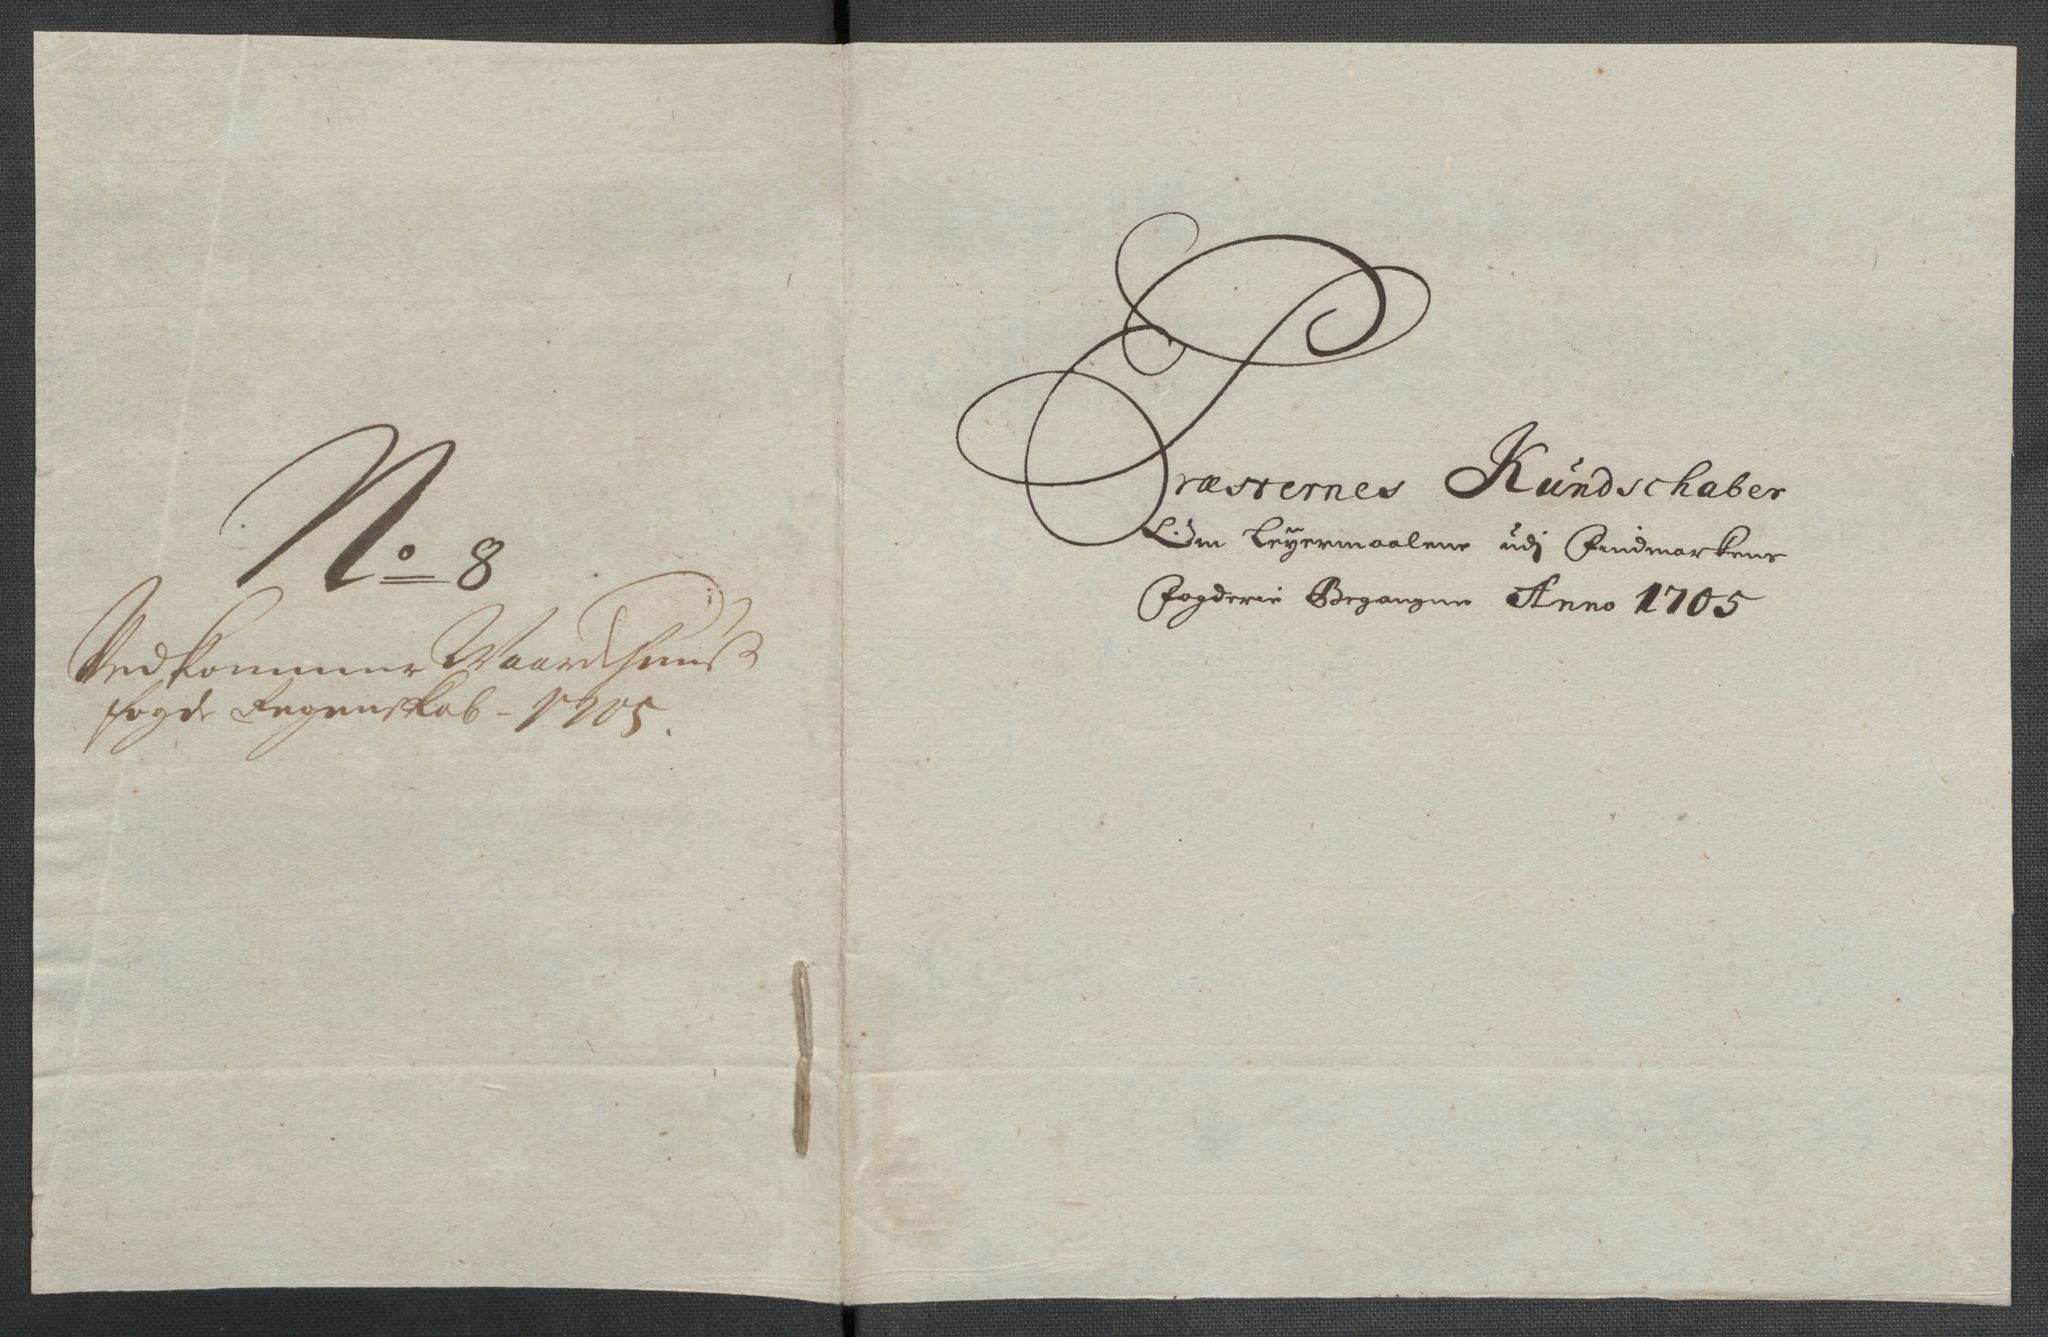 No 8
Vedkommer Waardhuuß
fogde Regenskab - 1705.
Præsternes Kundschaber
Om Leyermaalene udj Findmarkens
Fogderie Begangne Anno 1705